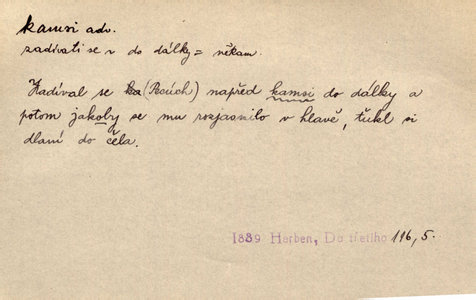 kamsi adv.
zadívati se v do dálky = někam.
Zadíval se (Pecúch) napřed kamsi do dálky a
potom jakoby se mu rozjasnilo v hlavě, tukl si
dlaní do čela.
1889 Herben, Do třetího 116, 5.